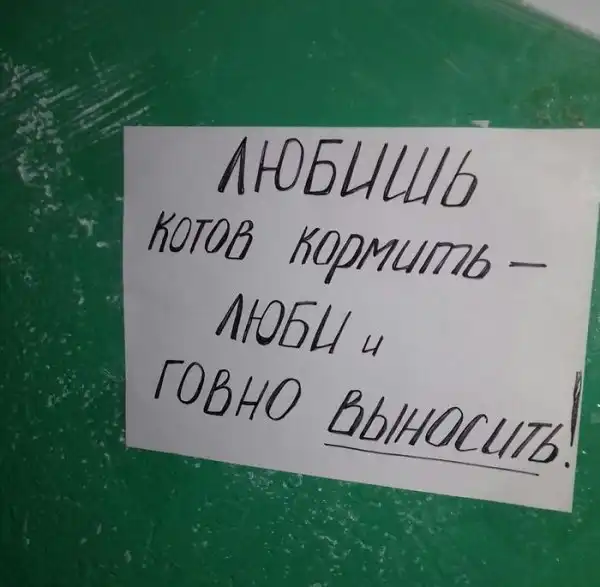 ЛЮБИШЬ
КОТОВ КОРМИТЬ –
ЛЮБИ и
ГОВНО ВЫНОСИТЬ!